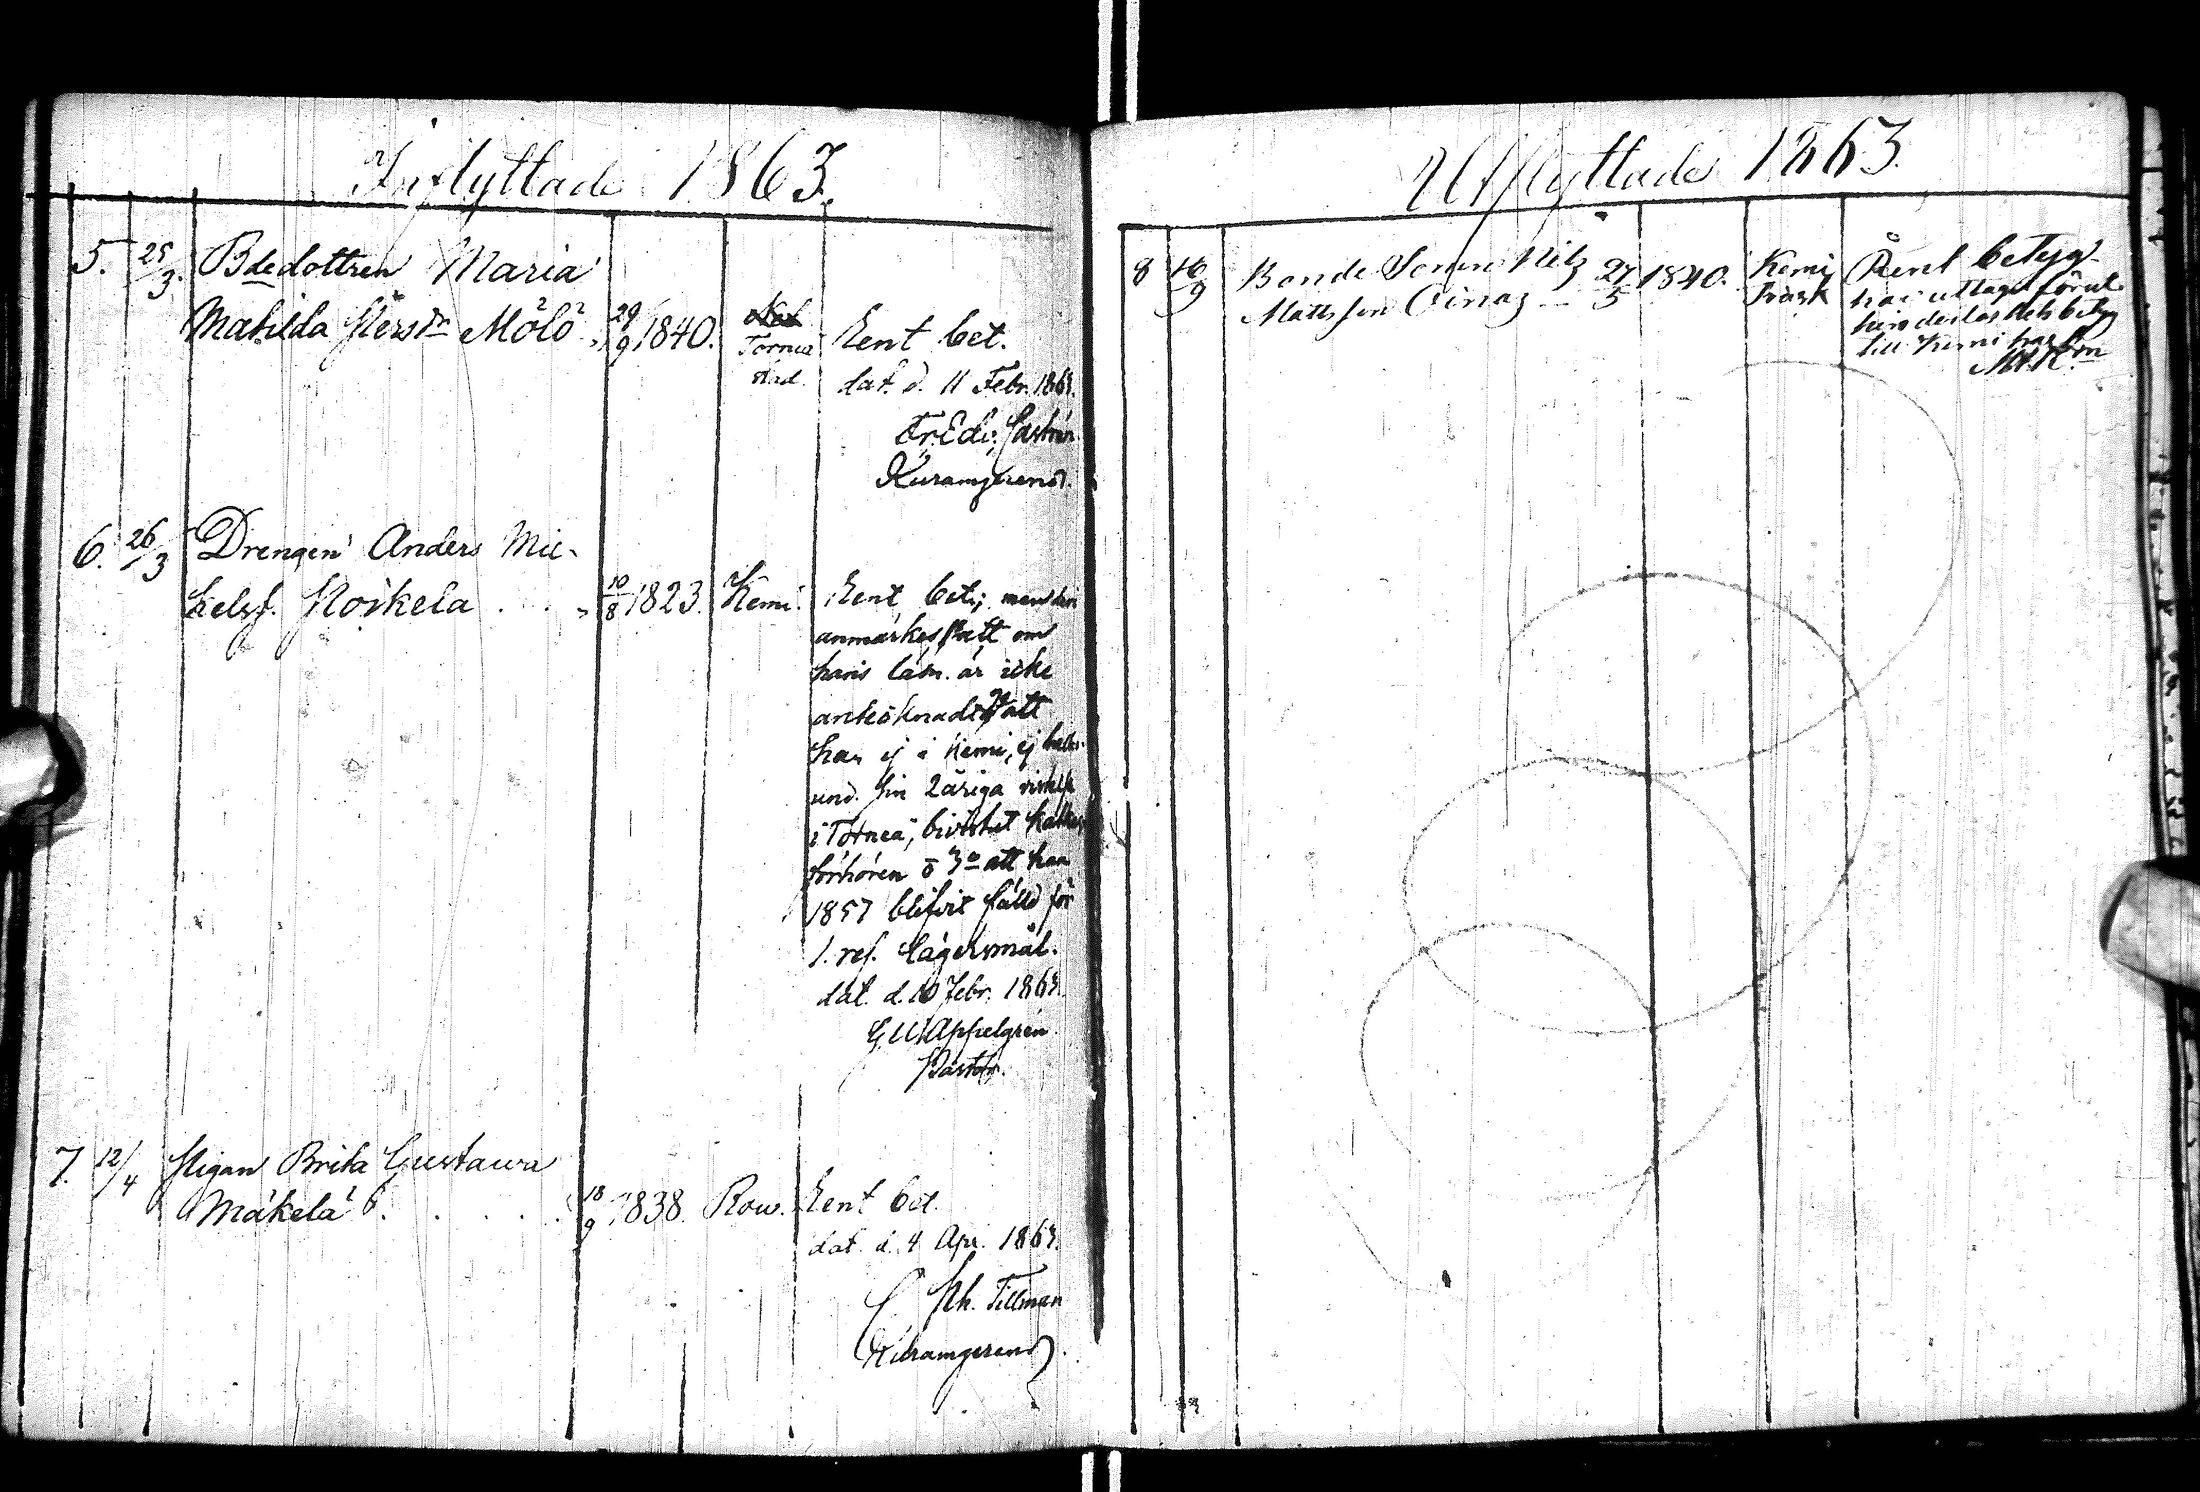 Inflyttade 1863.
5. 25/3. Bdedottren Maria
Mathilda Persdr Mölö 29/9 1840. Torneå stad. Rent bet.
dat. d. 11 Febr. 1863.
Fr. Edv. Castrén
Kyramgerend.
6. 26/3 Drengen Anders Mic-
kelsf. Noikela . . . 10/8 1823. Kemi. Rent bet; men
anmärkes att om
hans läsn. är icke
antecknadt att
han ej i Kemi, ej
und. sin 2åriga
i Torneå, bivistat
förhören o 3o att han
1857 blifvit fälld för
1. res. lägersmål.
dat. d. 10 Febr. 1863.
Appelgren
Pastor.
7. 12/4 Pigan Brita Gustawa
Mäkelä . . . . 18/9 1838. Row. Rent bet.
dat. d. 4 Apr. 1863.
Tillman
Kyramgerend.
Utflyttade 1863.
8 16/9 Bonde Sonen Nils 27/5 1840. Kemi Träsk Rent betyg
Mattsson Oinas har uttagit förut
hinderlöshets betyg
till Kemi